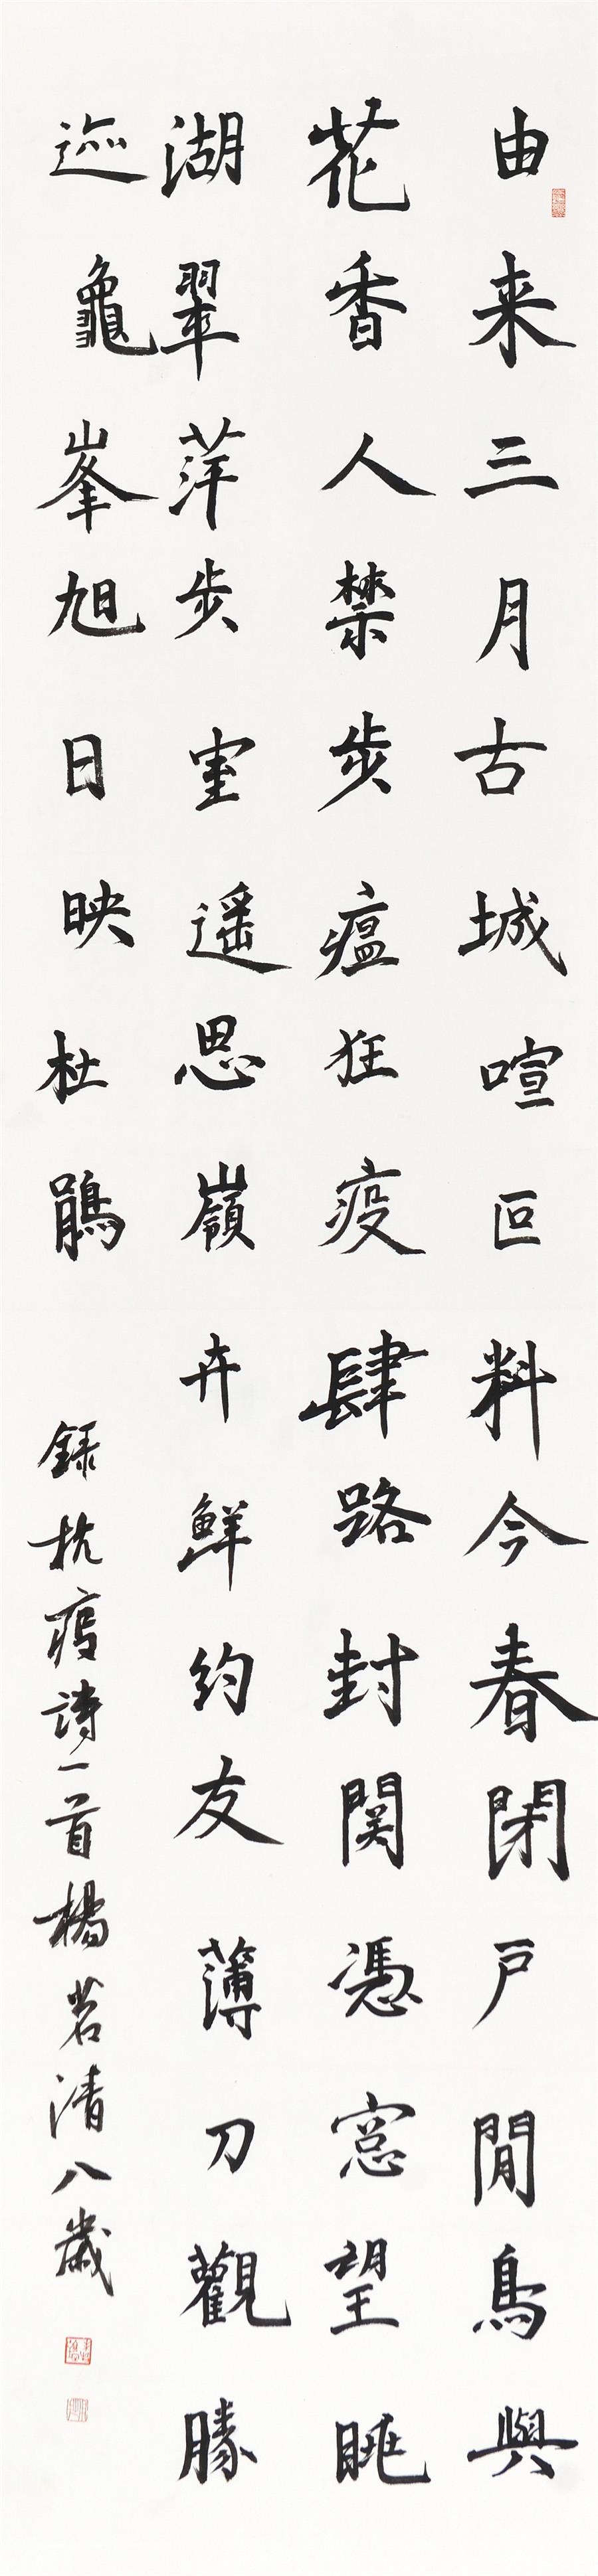 由来三月古城喧叵料今春閉戶閒鳥與
花香人禁步瘟狂疫肆路封関憑窓望眺
湖翠萍步室遥思嶺卉鮮約友薄刀觀勝
迹龜峯旭日映杜鵑
録抗疫詩一首楊茗清八歲